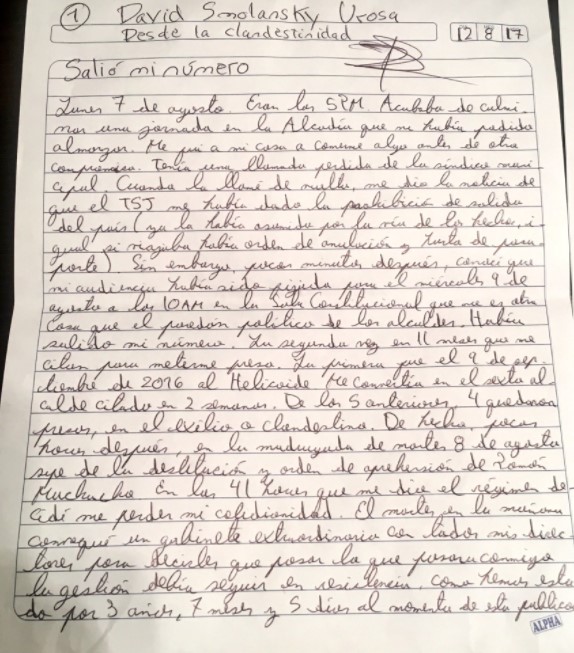 1 David Smolansky Urosa
Desde la clandestinidad 12 8 17
Salió mi número
Lunes 7 de agosto. Eran las 5PM. Acababa de culmi
nar una jornada en la Alcaldía que no había podido
almorzar. Me fui a mi casa a comerme algo antes de otro
compromiso. Tenía una llamada perdida de la síndico muni
cipal. Cuando la llamé de vuelta, me dio la noticia de
que el TSJ me había dado la prohibición de salida
del país (ya la había asumido por la vía de los hechos, i
gual si viajaba había orden de anulación y hurto de pasa
porte) Sin embargo, pocos minutos después, conocí que
mi audiencia había sido fijada para el miércoles 9 de
agosto a las 10AM en la Sala Constitucional que no es otra
cosa que el paredón político de los alcaldes. Había
salido mi número. La segunda vez en 11 meses que me
citan para meterme preso. La primera fue el 9 de sep
tiembre de 2016 al Helicoide Me convertía en el sexto al
calde citado en 2 semanas. De los 5 anteriores, 4 quedaron
presos, en el exilio o clandestino. De hecho, pocas
horas después, en la madrugada de martes 8 de agosto
supe de la destitución y orden de aprehensión de Ramón
Muchacho En las 41 horas que me dice el régimen de
cidí no perder mi cotidianidad. El martes en la mañana
convoqué un gabinete extraordinario con todos mis direc
tores para decirles que pasar la que pasara conmigo
la gestión debía seguir en resistencia, como hemos esta
do por 3 años, 7 meses y 5 días al momento de esta publica
ALPHA